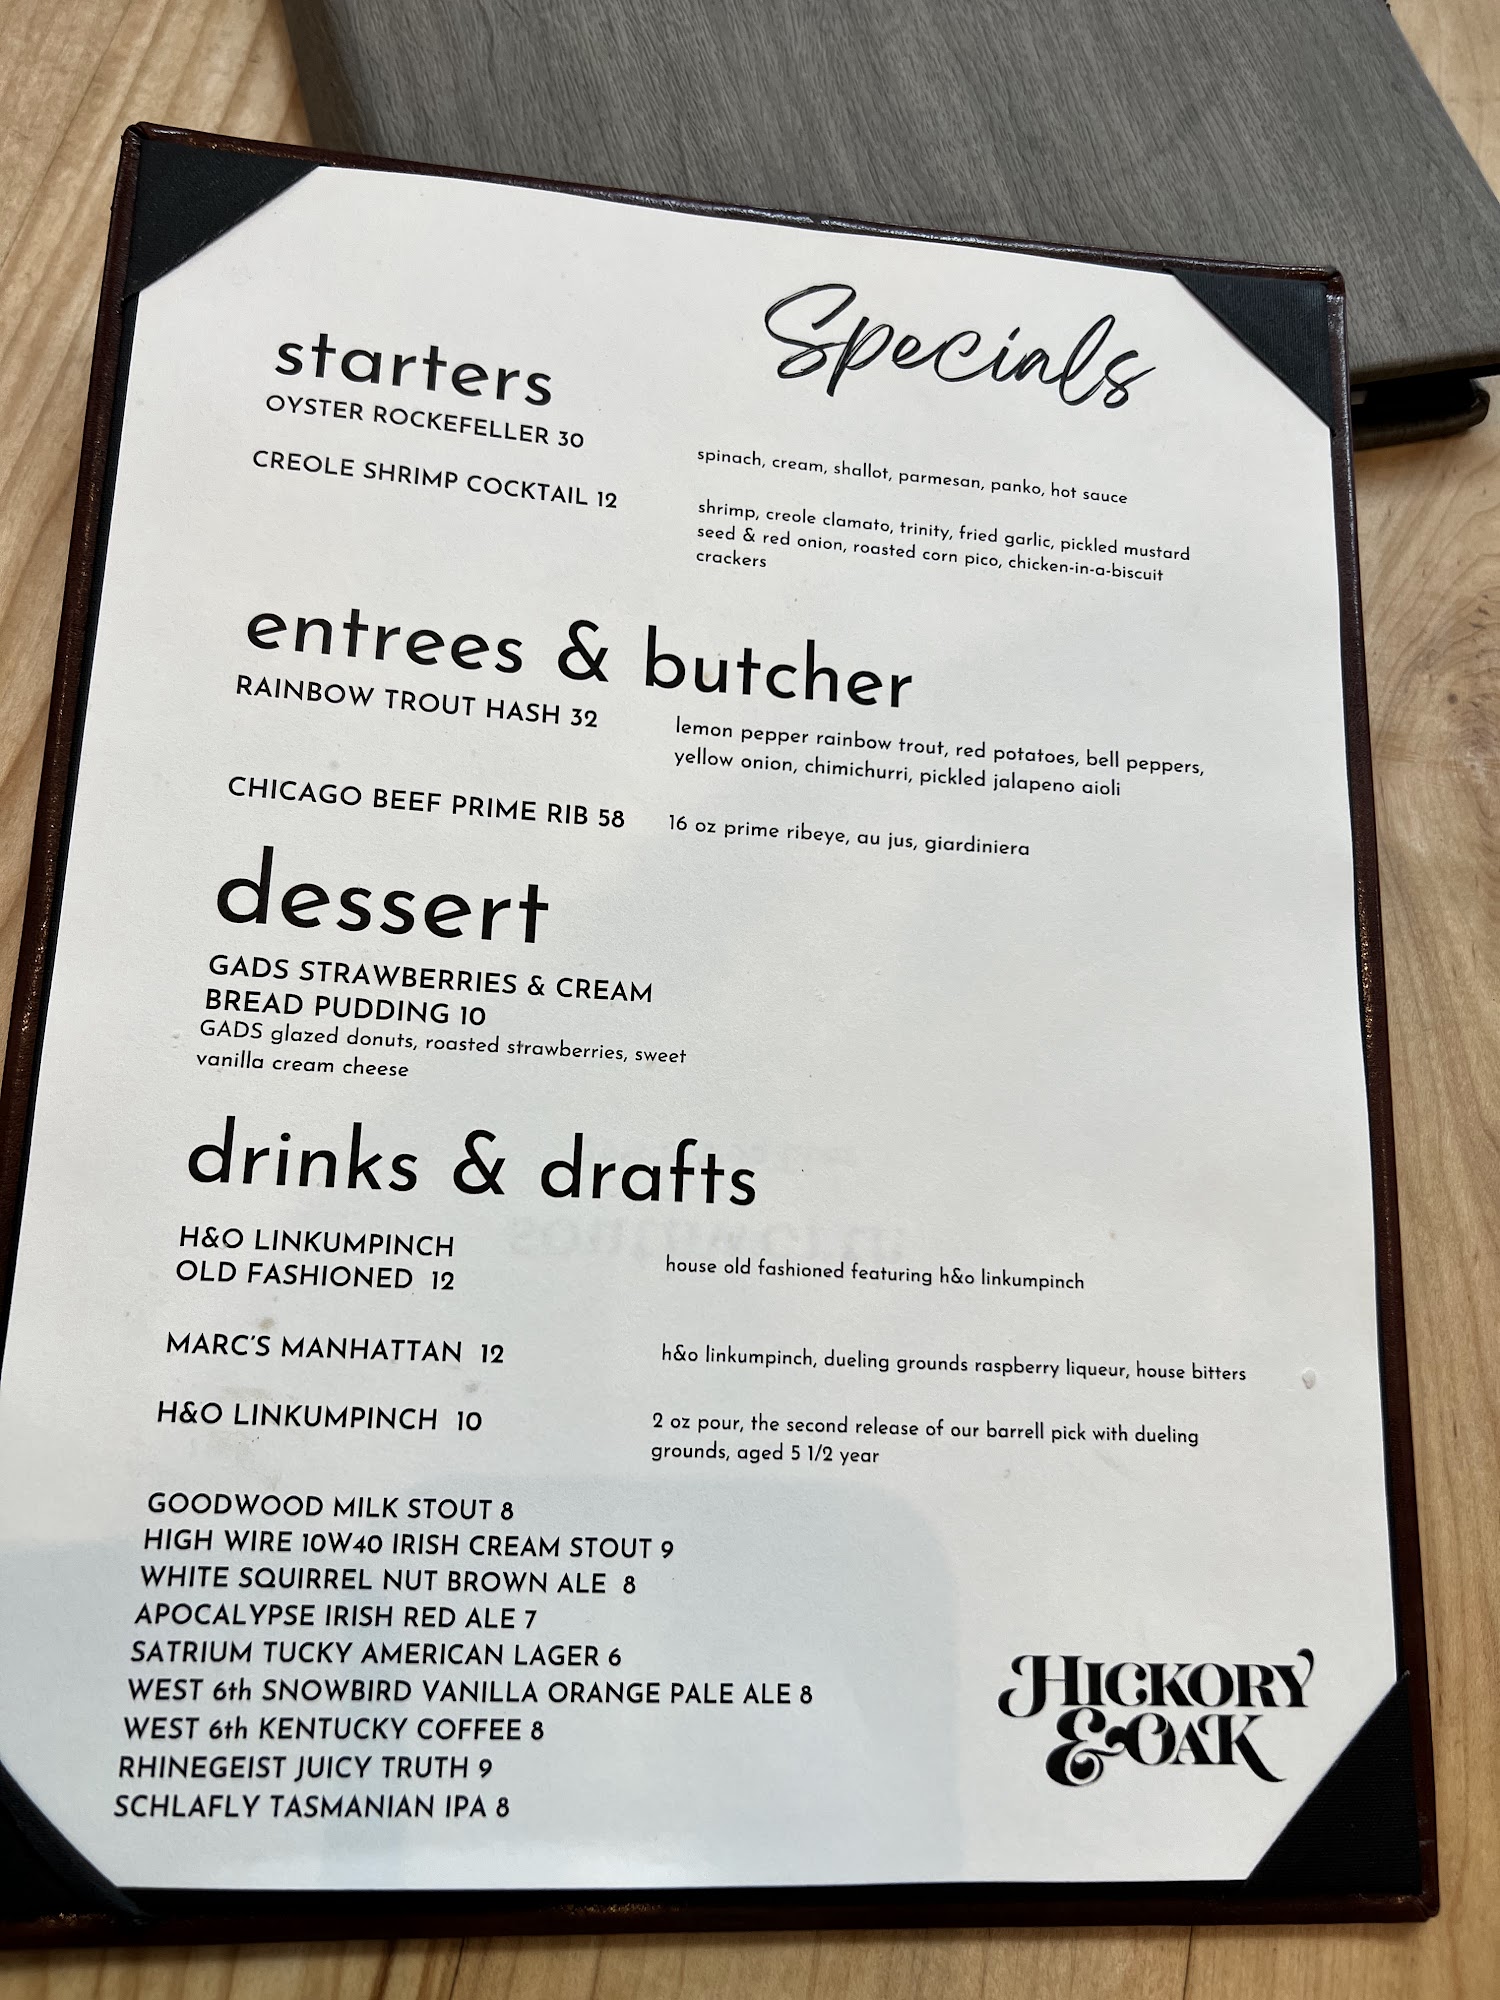 Specials
starters
OYSTER ROCKEFELLER 30
spinach, cream, shallot, parmesan, panko, hot sauce
CREOLE SHRIMP COCKTAIL 12
shrimp, creole clamato, trinity, fried garlic, pickled mustard
seed & red onion, roasted corn pico, chicken-in-a-biscuit
crackers
entrees & butcher
RAINBOW TROUT HASH 32
lemon pepper rainbow trout, red potatoes, bell peppers,
yellow onion, chimichurri, pickled jalapeno aioli
CHICAGO BEEF PRIME RIB 58
16 oz prime ribeye, au jus, giardiniera
dessert
GADS STRAWBERRIES & CREAM
BREAD PUDDING 10
GADS glazed donuts, roasted strawberries, sweet
vanilla cream cheese
drinks & drafts
H&O LINKUMPINCH
OLD FASHIONED 12
house old fashioned featuring h&o linkumpinch
MARC'S MANHATTAN 12
h&o linkumpinch, dueling grounds raspberry liqueur, house bitters
H&O LINKUMPINCH 10
2 oz pour, the second release of our barrell pick with dueling
grounds, aged 5 1/2 year
GOODWOOD MILK STOUT 8
HIGH WIRE 10W40 IRISH CREAM STOUT 9
WHITE SQUIRREL NUT BROWN ALE 8
APOCALYPSE IRISH RED ALE 7
SATRIUM TUCKY AMERICAN LAGER 6
WEST 6th SNOWBIRD VANILLA ORANGE PALE ALE 8
WEST 6th KENTUCKY COFFEE 8
RHINEGEIST JUICY TRUTH 9
SCHLAFLY TASMANIAN IPA 8
HICKORY
&OAK